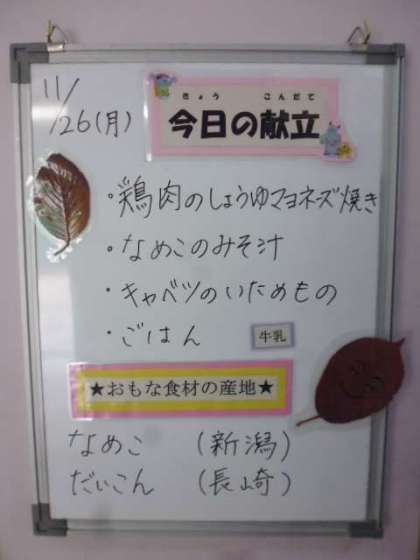 11/26(月)
きょう こんだて
今日の献立
・鶏肉のしょうゆマヨネーズ焼き
・なめこのみそ汁
・キャベツのいためもの
・ごはん 牛乳
★おもな食材の産地★
なめこ (新潟)
だいこん (長崎)